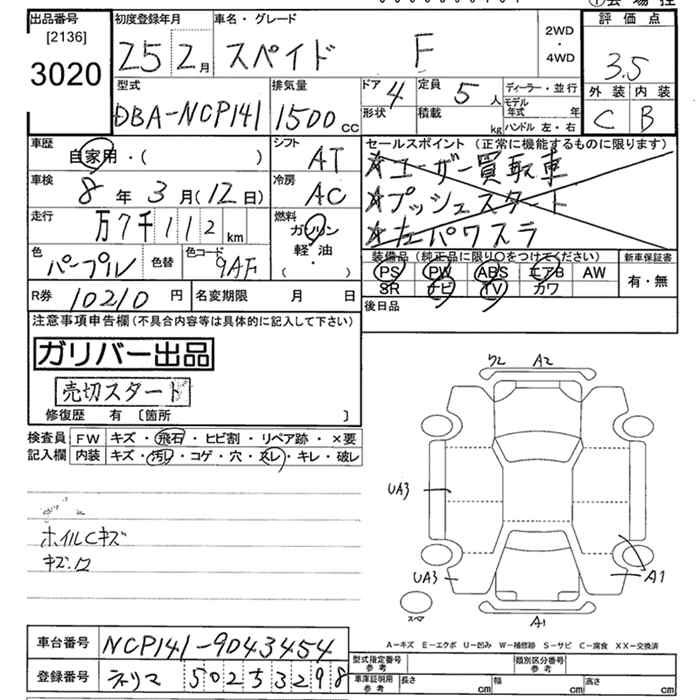 出品番号
[2136]
3020
初度登録年月
25 2月
車名・グレード
スペイド F
2WD
・
4WD
評価点
3.5
外装 内装
C B
型式
DBA-NCP141
排気量
1500 cc
ドア 4
形状
定員 5 人
積載 kg
ディーラー・並行
モデル年式 年
ハンドル 左・右
車歴
自家用・( )
シフト
AT
車検
8年 3月(12日)
冷房
AC
走行
万7千112 km
燃料
ガソリン
軽油
・( )
色
パープル
色替
色コード
9AF
R券 10210 円
名変期限 月 日
セールスポイント(正常に機能するものに限ります)
★ユーザー買取車
★プッシュスタート
★左パワスラ
装備品(純正品に限り○をつけてください)
PS PW ABS エアB AW
SR ナビ TV カワ
新車保証書
有・無
後日品
注意事項申告欄(不具合内容等は具体的に記入して下さい)
ガリバー出品
売切スタート
修復歴 有 〔箇所 〕
検査員
記入欄
FW キズ・飛石・ヒビ割・リペア跡・×要
内装 キズ・汚レ・コゲ・穴・スレ・キレ・破レ
ホイルCキズ
W2 A2
UA3
UA3
A1
A1
スペア
A-キズ E-エクボ U-凹み W-補修跡 S-サビ C-腐食 XX-交換済
車台番号 NCP141-9043454
登録番号 ネリマ 502 5 3298
型式指定番号
参考
類別区分番号
参考
車庫証明用
参考
長さ cm
幅 cm
高さ cm